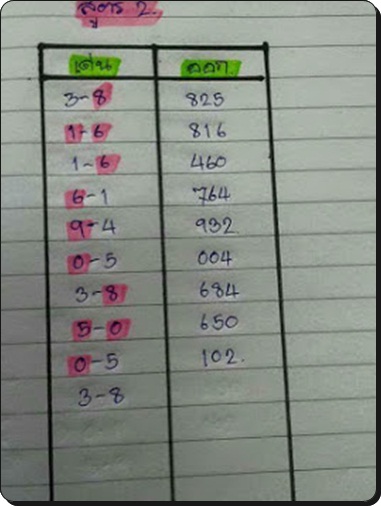 สูตร 2.
เด่น ออก.
3-8 825
1-6 816
1-6 460
6-1 764
9-4 932
0-5 004
3-8 684
5-0 650
0-5 102.
3-8